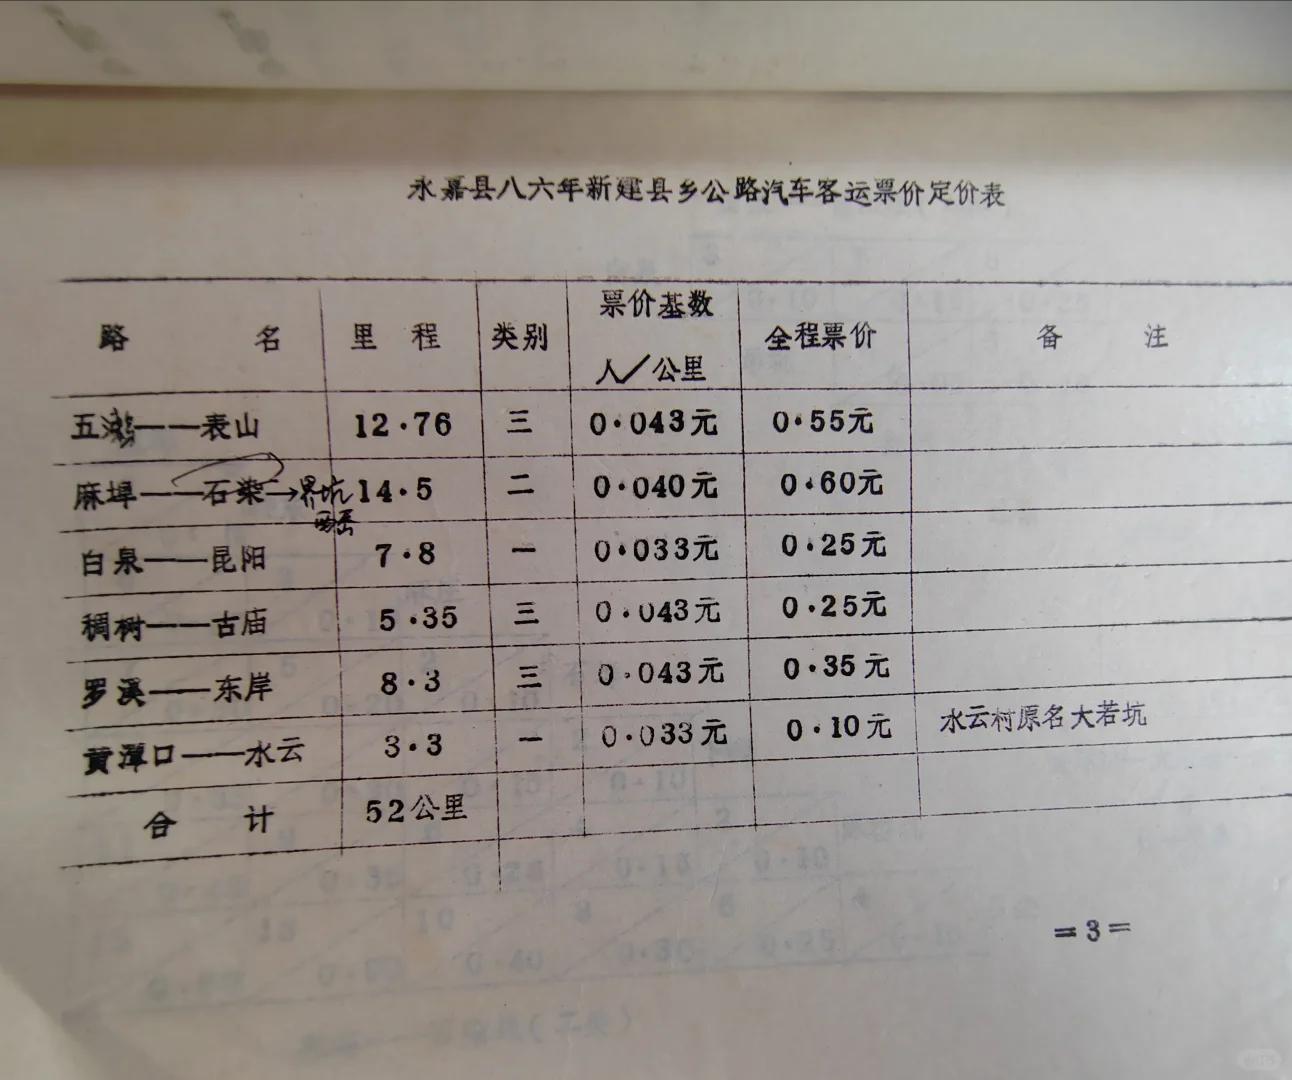 永嘉县八六年新建县乡公路汽车客运票价定价表
路 名 里 程 类别 票价基数 人/公里 全程票价 备 注
五 ——表山 12·76 三 0·043元 0·55元
麻埠——石柒→界坑 14·5 二 0·040元 0·60元
白泉——昆阳 7·8 一 0·033元 0·25元
稠树——古庙 5·35 三 0·043元 0·25元
罗溪——东岸 8·3 三 0·043元 0·35元
黄潭口——水云 3·3 一 0·033元 0·10元 水云村原名大若坑
合 计 52公里
=3=